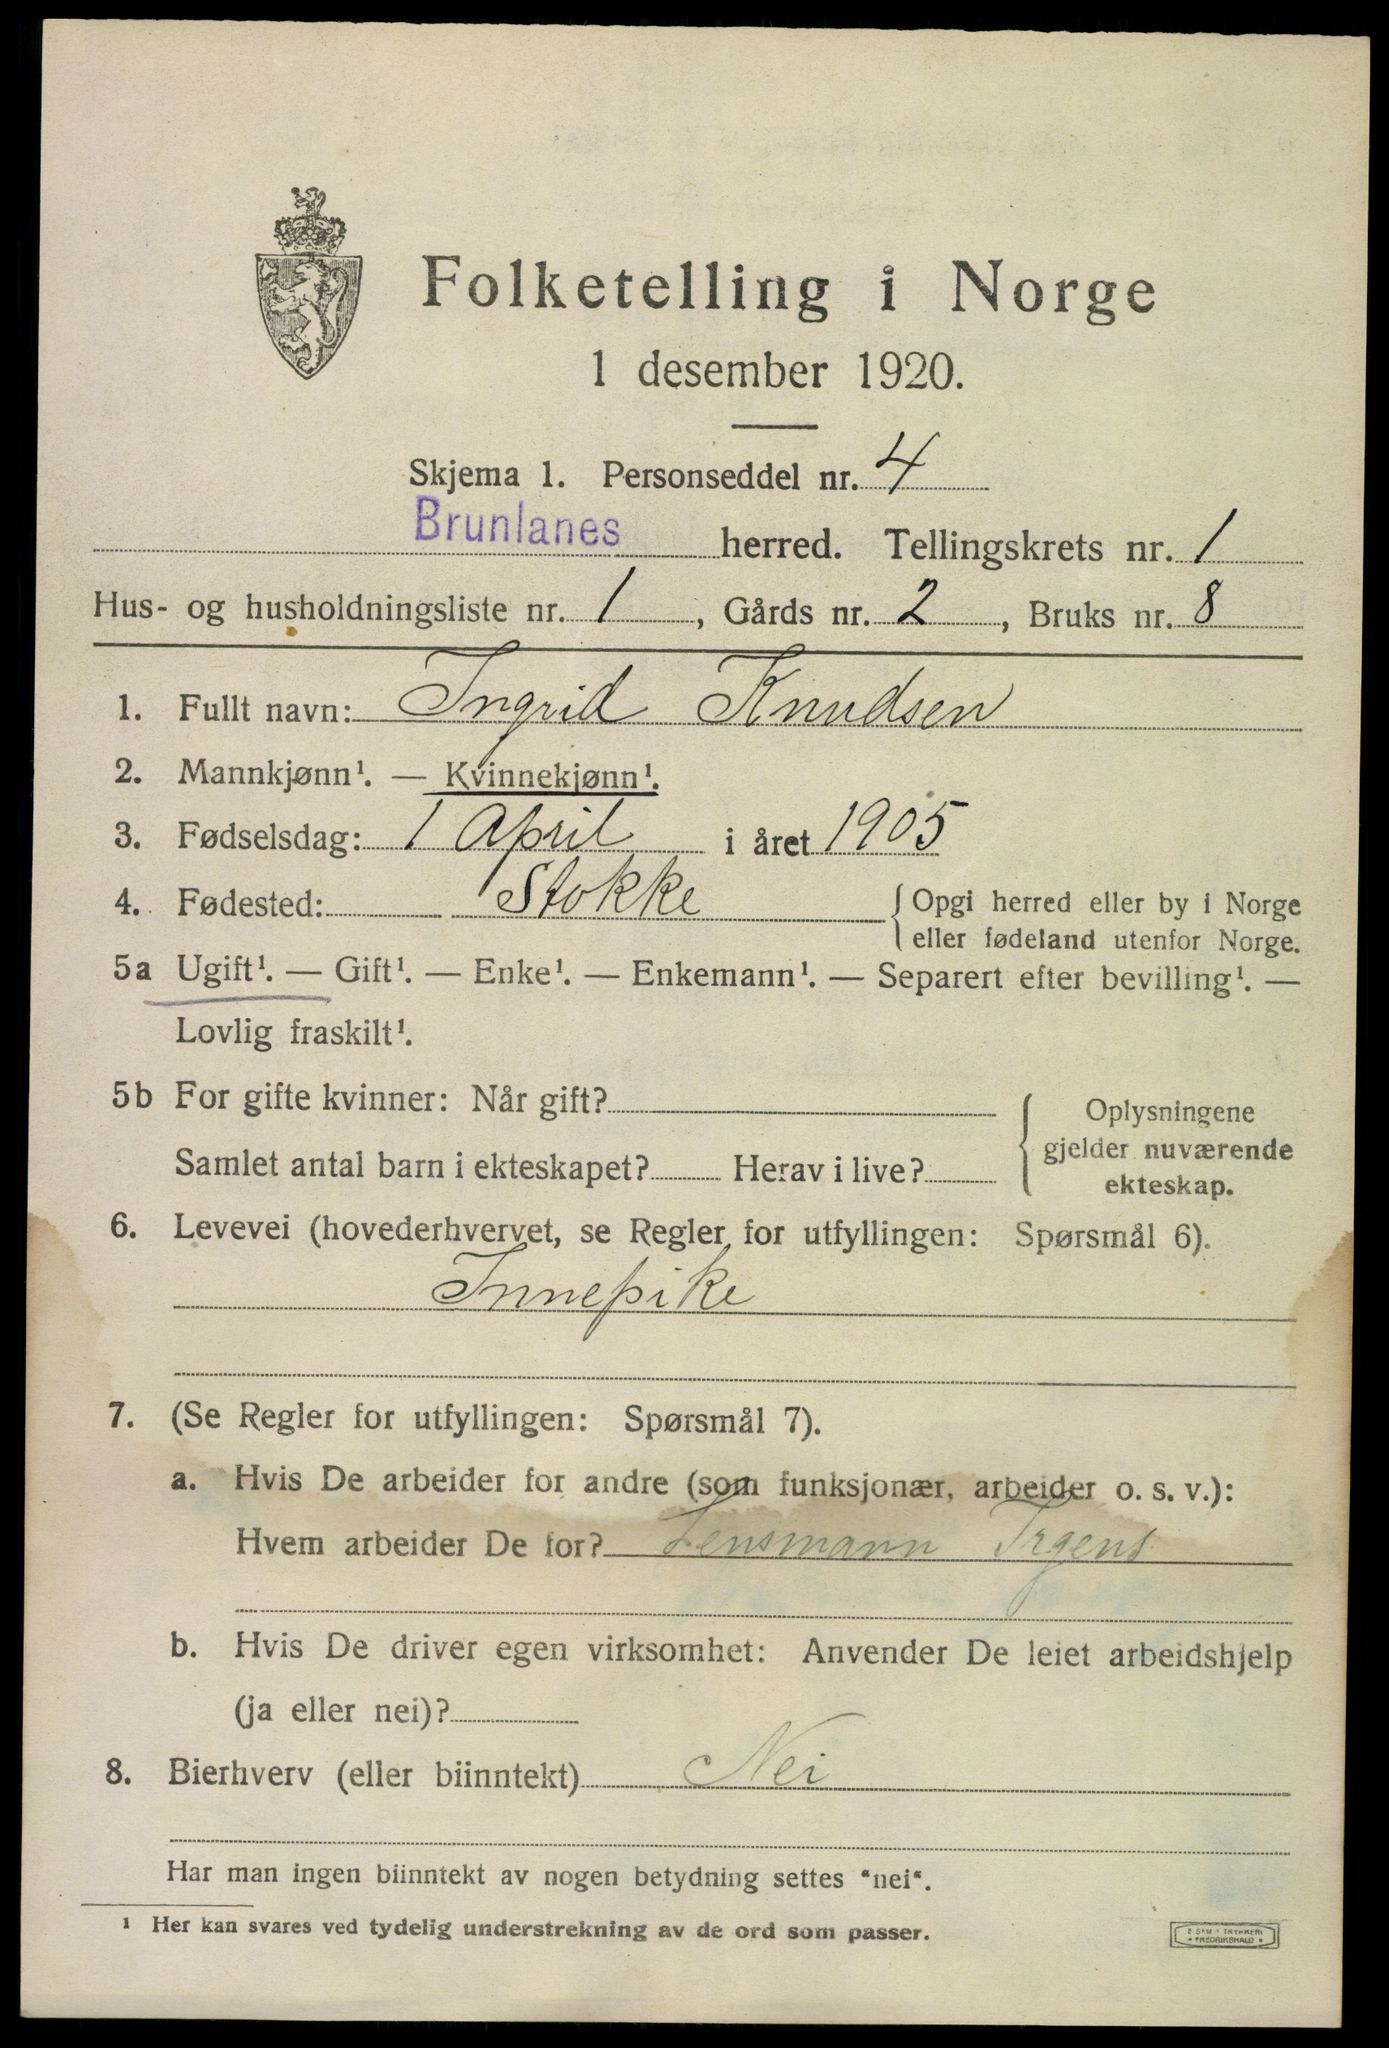 Folketelling i Norge
1 desember 1920.
Skjema 1. Personseddel nr. 4
Brunlanes herred. Tellingskrets nr. 1
Hus- og husholdningsliste nr. 1, Gårds nr. 2, Bruks nr. 8
1. Fullt navn: Ingrid Knudsen
2. Mannkjønn¹. — Kvinnekjønn¹.
3. Fødselsdag: 1 April i året 1905
4. Fødested: Stokke { Opgi herred eller by i Norge
eller fødeland utenfor Norge.
5a Ugift¹. — Gift¹. — Enke¹. — Enkemann¹. — Separert efter bevilling¹. —
Lovlig fraskilt¹.
5b For gifte kvinner: Når gift?
Samlet antal barn i ekteskapet? Herav i live?
{ Oplysningene
gjelder nuværende
ekteskap.
6. Levevei (hovederhvervet, se Regler for utfyllingen: Spørsmål 6).
Innepike
7. (Se Regler for utfyllingen: Spørsmål 7).
a. Hvis De arbeider for andre (som funksjonær, arbeider o. s. v.):
Hvem arbeider De for? Lensmann Irgens
b. Hvis De driver egen virksomhet: Anvender De leiet arbeidshjelp
(ja eller nei)?
8. Bierhverv (eller biinntekt) Nei
Har man ingen biinntekt av nogen betydning settes "nei".
¹ Her kan svares ved tydelig understrekning av de ord som passer.
FREDRIKSHALD